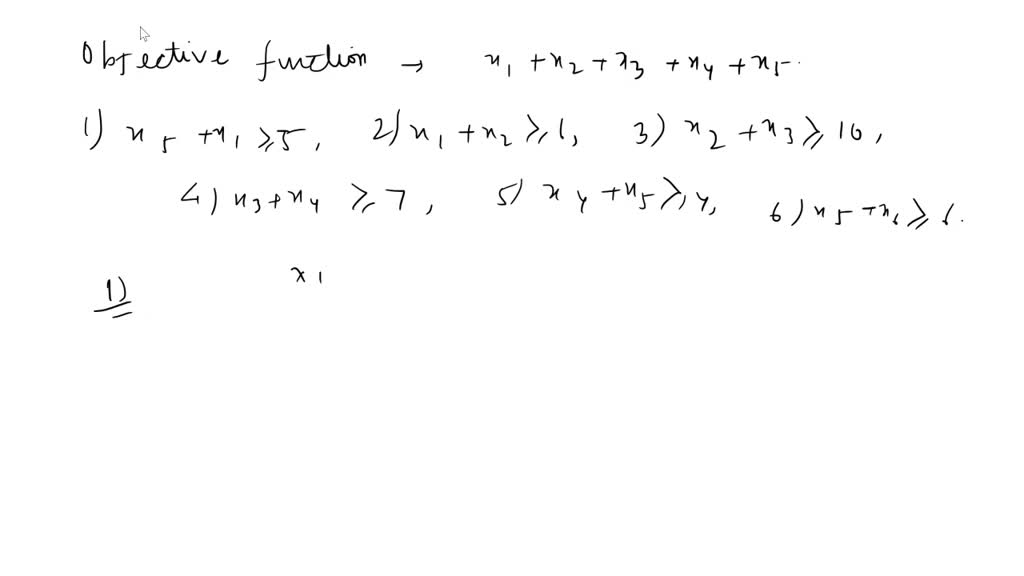 Objective function → x1 + x2 + x3 + x4 + x5.
1) x5 + x1 ≥ 5, 2) x1 + x2 ≥ 1, 3) x2 + x3 ≥ 10,
4) x3 + x4 ≥ 7, 5) x4 + x5 ≥ 4, 6) x5 + x6 ≥ 6.
1) x1